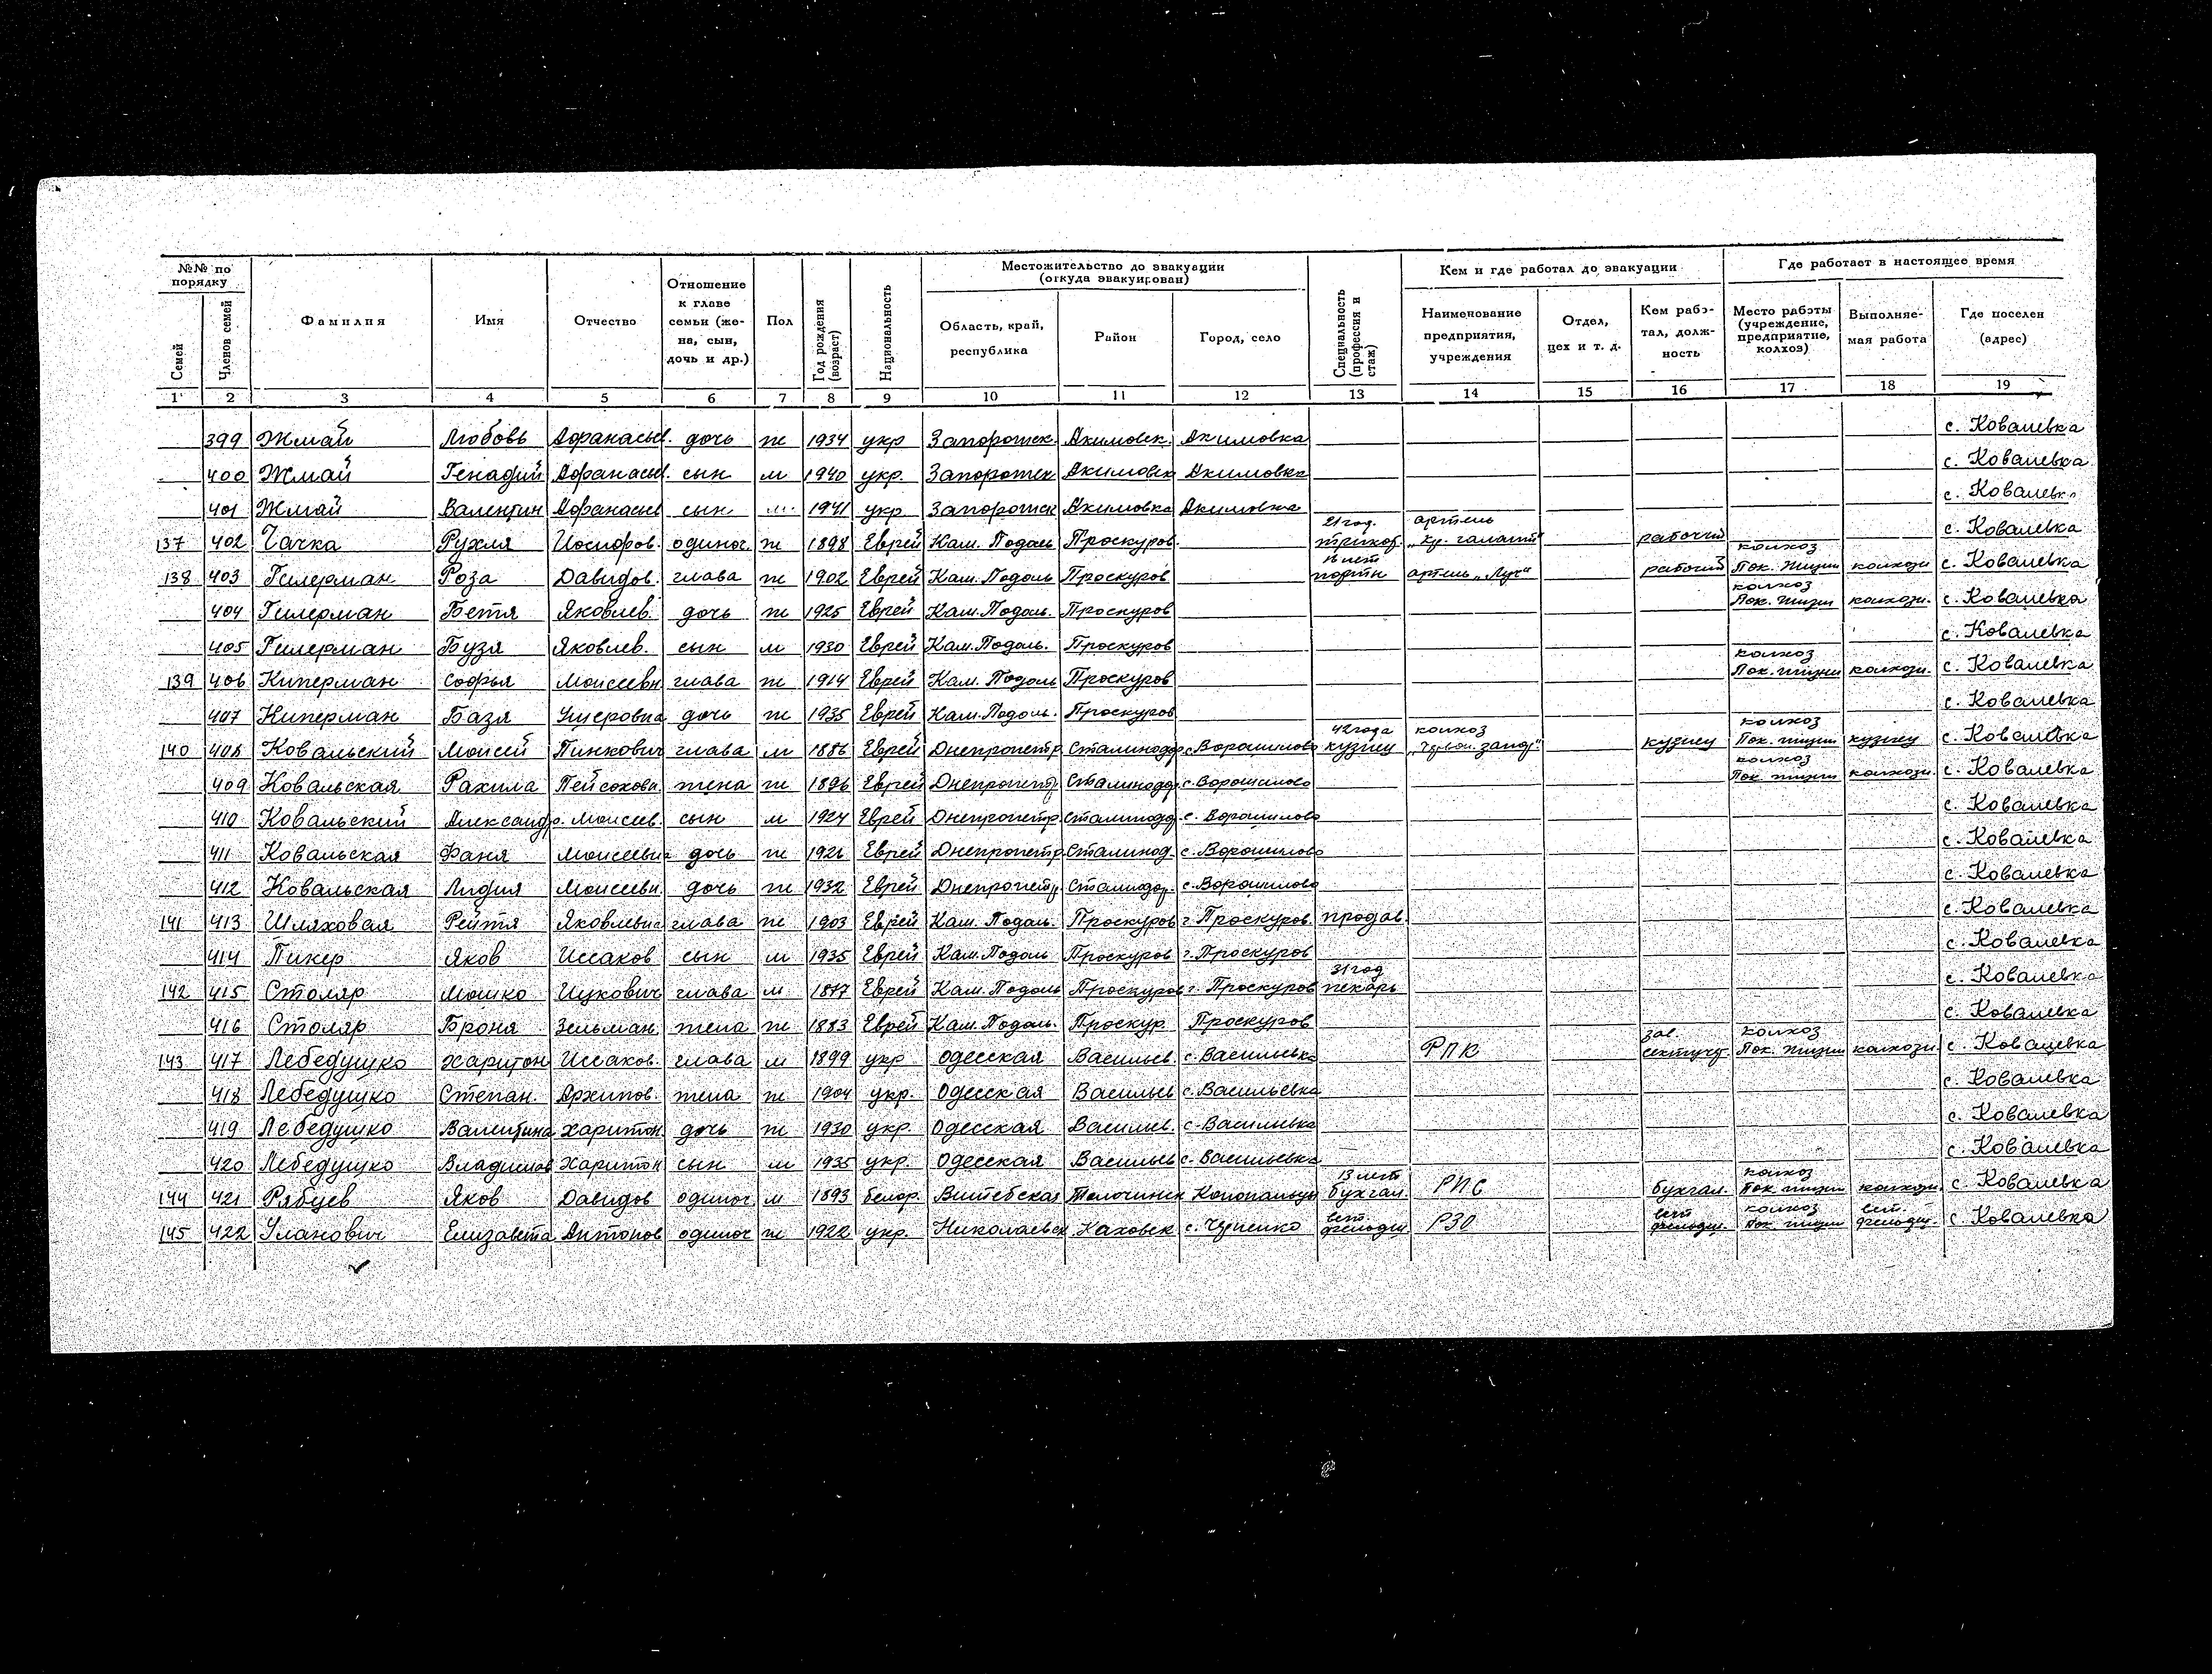 №№ по порядку | Фамилия | Имя | Отчество | Отношение к главе семьи (жена, сын, дочь и др.) | Пол | Год рождения (возраст) | Национальность | Местожительство до эвакуации (откуда эвакуирован) | Специальность (профессия и стаж) | Кем и где работал до эвакуации | Где работает в настоящее время
Семей | Членов семей | Область, край, республика | Район | Город, село | Наименование предприятия, учреждения | Отдел, цех и т. д. | Кем работал, должность | Место работы (учреждение, предприятие, колхоз) | Выполняемая работа | Где поселен (адрес)
1 2 3 4 5 6 7 8 9 10 11 12 13 14 15 16 17 18 19
399 Жмай Любовь Афанасьев. дочь ж 1934 укр Запорожск. Акимовск. Акимовка с. Ковалевка
400 Жмай Генадий Афанасьев. сын м 1940 укр. Запорожск Акимовск Акимовка с. Ковалевка
401 Жмай Валентин Афанасьев сын м 1941 укр Запорожск Акимовка Акимовка с. Ковалевка
137 402 Чачка Рухля Иосифов. одиноч. ж 1898 Еврей Кам. Подоль Проскуров. 21 год. трикот. артель „Кр. галант" рабочий с. Ковалевка
138 403 Гилерман Роза Давидов. глава ж 1902 Еврей Кам. Подоль Проскуров портн артель „Луч" рабочий колхоз Пок. Жизни колхозн с. Ковалевка
404 Гилерман Бетя Яковлев. дочь ж 1925 Еврей Кам. Подоль. Проскуров колхоз Пок. жизни колхозн. с. Ковалевка
405 Гилерман Бузя Яковлев. сын м 1930 Еврей Кам. Подоль. Проскуров с. Ковалевка
139 406 Киперман Софья Моисеевн глава ж 1914 Еврей Кам. Подоль Проскуров колхоз Пок. жизни колхозн. с. Ковалевка
407 Киперман Базя Ушеровна дочь ж 1935 Еврей Кам. Подоль. Проскуров с. Ковалевка
140 408 Ковальский Моисей Пинкович глава м 1886 Еврей Днепропетр Сталиндор с. Ворошилово 42 года кузнец колхоз кузнец колхоз Пок. жизни кузнец с. Ковалевка
409 Ковальская Рахила Пейсахов. жена ж 1896 Еврей Днепропетр. Сталиндор. с. Ворошилово колхоз Пок жизни колхозн. с. Ковалевка
410 Ковальский Александр. Моисеев. сын м 1924 Еврей Днепропетр Сталиндор. с. Ворошилово с. Ковалевка
411 Ковальская Фаня Моисеевна дочь ж 1926 Еврей Днепропетр. Сталинод. с. Ворошилово с. Ковалевка
412 Ковальская Лидия Моисеевн. дочь ж 1932 Еврей Днепропетр Сталиндор. с. Ворошилово с. Ковалевка
141 413 Шляховая Рейтя Яковлевна глава ж 1903 Еврей Кам. Подоль. Проскуров г. Проскуров. продав. с. Ковалевка
414 Пикер Яков Иссаков сын м 1935 Еврей Кам. Подоль Проскуров г. Проскуров с. Ковалевка
142 415 Столяр Мошко Ицкович глава м 1877 Еврей Кам. Подоль Проскуров г. Проскуров 31 год пекарь с. Ковалевка
416 Столяр Броня Зельман. жена ж 1883 Еврей Кам. Подоль. Проскур Проскуров с. Ковалевка
143 417 Лебедушко Харитон Иссаков. глава м 1899 укр Одесская Васильев. с. Васильевка РПК зав. колхоз Пок. жизни колхозн с. Ковалевка
418 Лебедушко Степан. Архипов. жена ж 1904 укр. Одесская Васильев с. Васильевка с. Ковалевка
419 Лебедушко Валентина Харитон. дочь ж 1930 укр. Одесская Васильев. с. Васильевка с. Ковалевка
420 Лебедушко Владислав Харитон сын м 1935 укр. Одесская Васильев с. Васильевка с. Ковалевка
144 421 Рябцев Яков Давидов одиноч. м 1893 белор. Витебская Толочинск 13 лет бухгал. РПС бухгал. колхоз Пок. жизни колхозн. с. Ковалевка
145 422 Уланович Елизавета Антонов одиноч ж 1922 укр. Николаевск Каховск РЗО колхоз Пок жизни с. Ковалевка